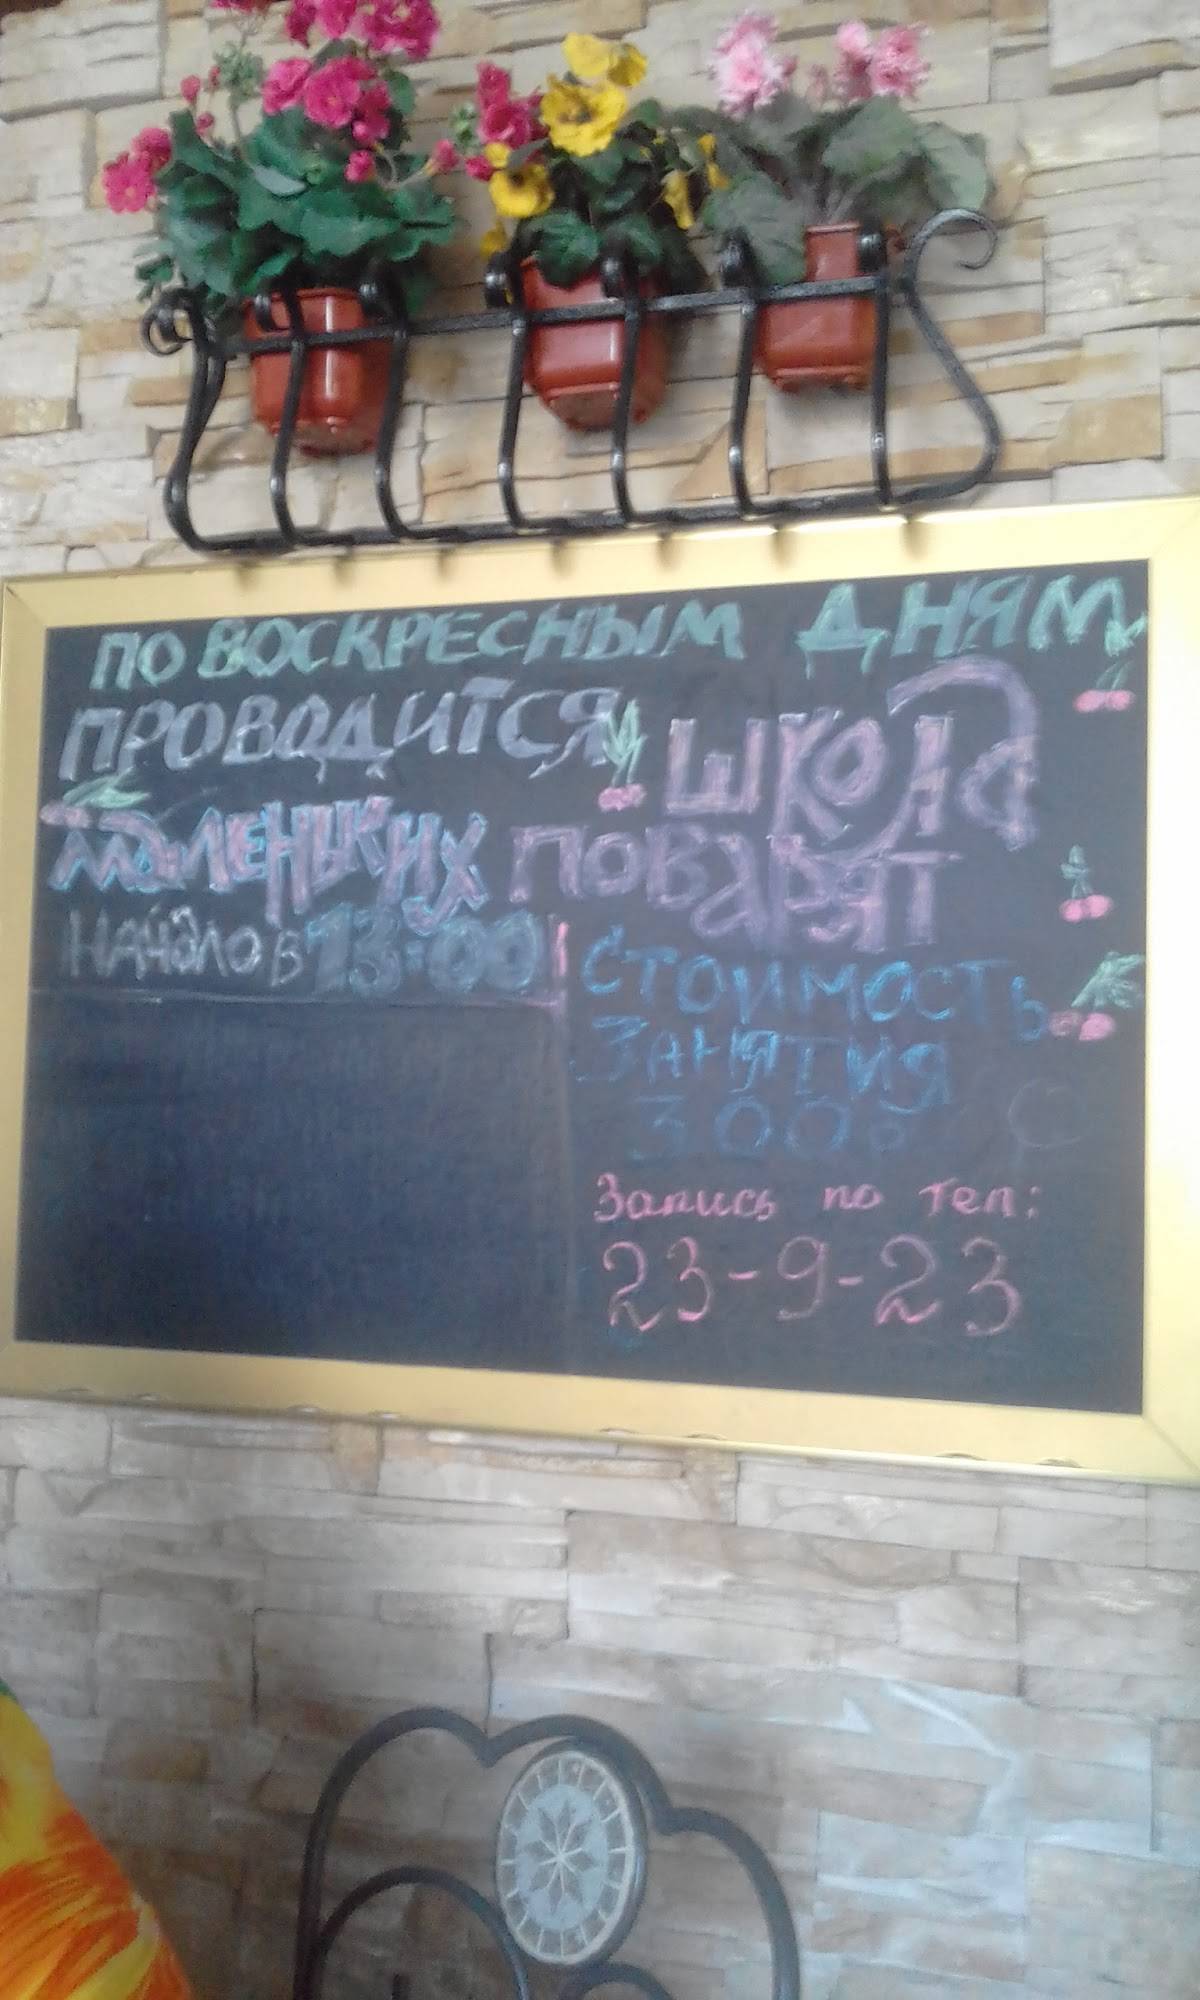 ПО ВОСКРЕСНЫМ ДНЯМ
ПРОВОДИТСЯ ШКОЛА
МАЛЕНЬКИХ ПОВАРЯТ
НАЧАЛО В 13:00
СТОИМОСТЬ
ЗАНЯТИЯ
300 р
Запись по тел:
23-9-23